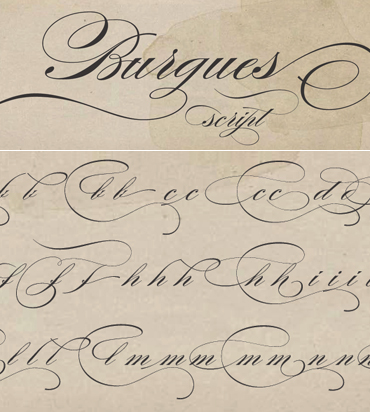 Burgues
script
b b b b c c c c d d
f f f f h h h h h i i i i
l l l l l m m m m m m n n n